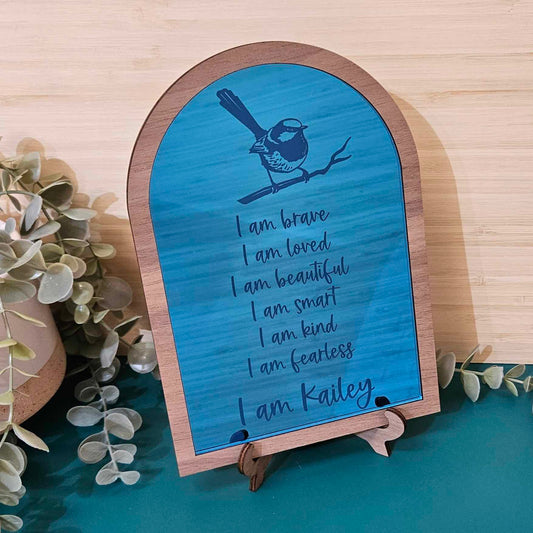 I am brave
I am loved
I am beautiful
I am smart
I am kind
I am fearless
I am Kailey